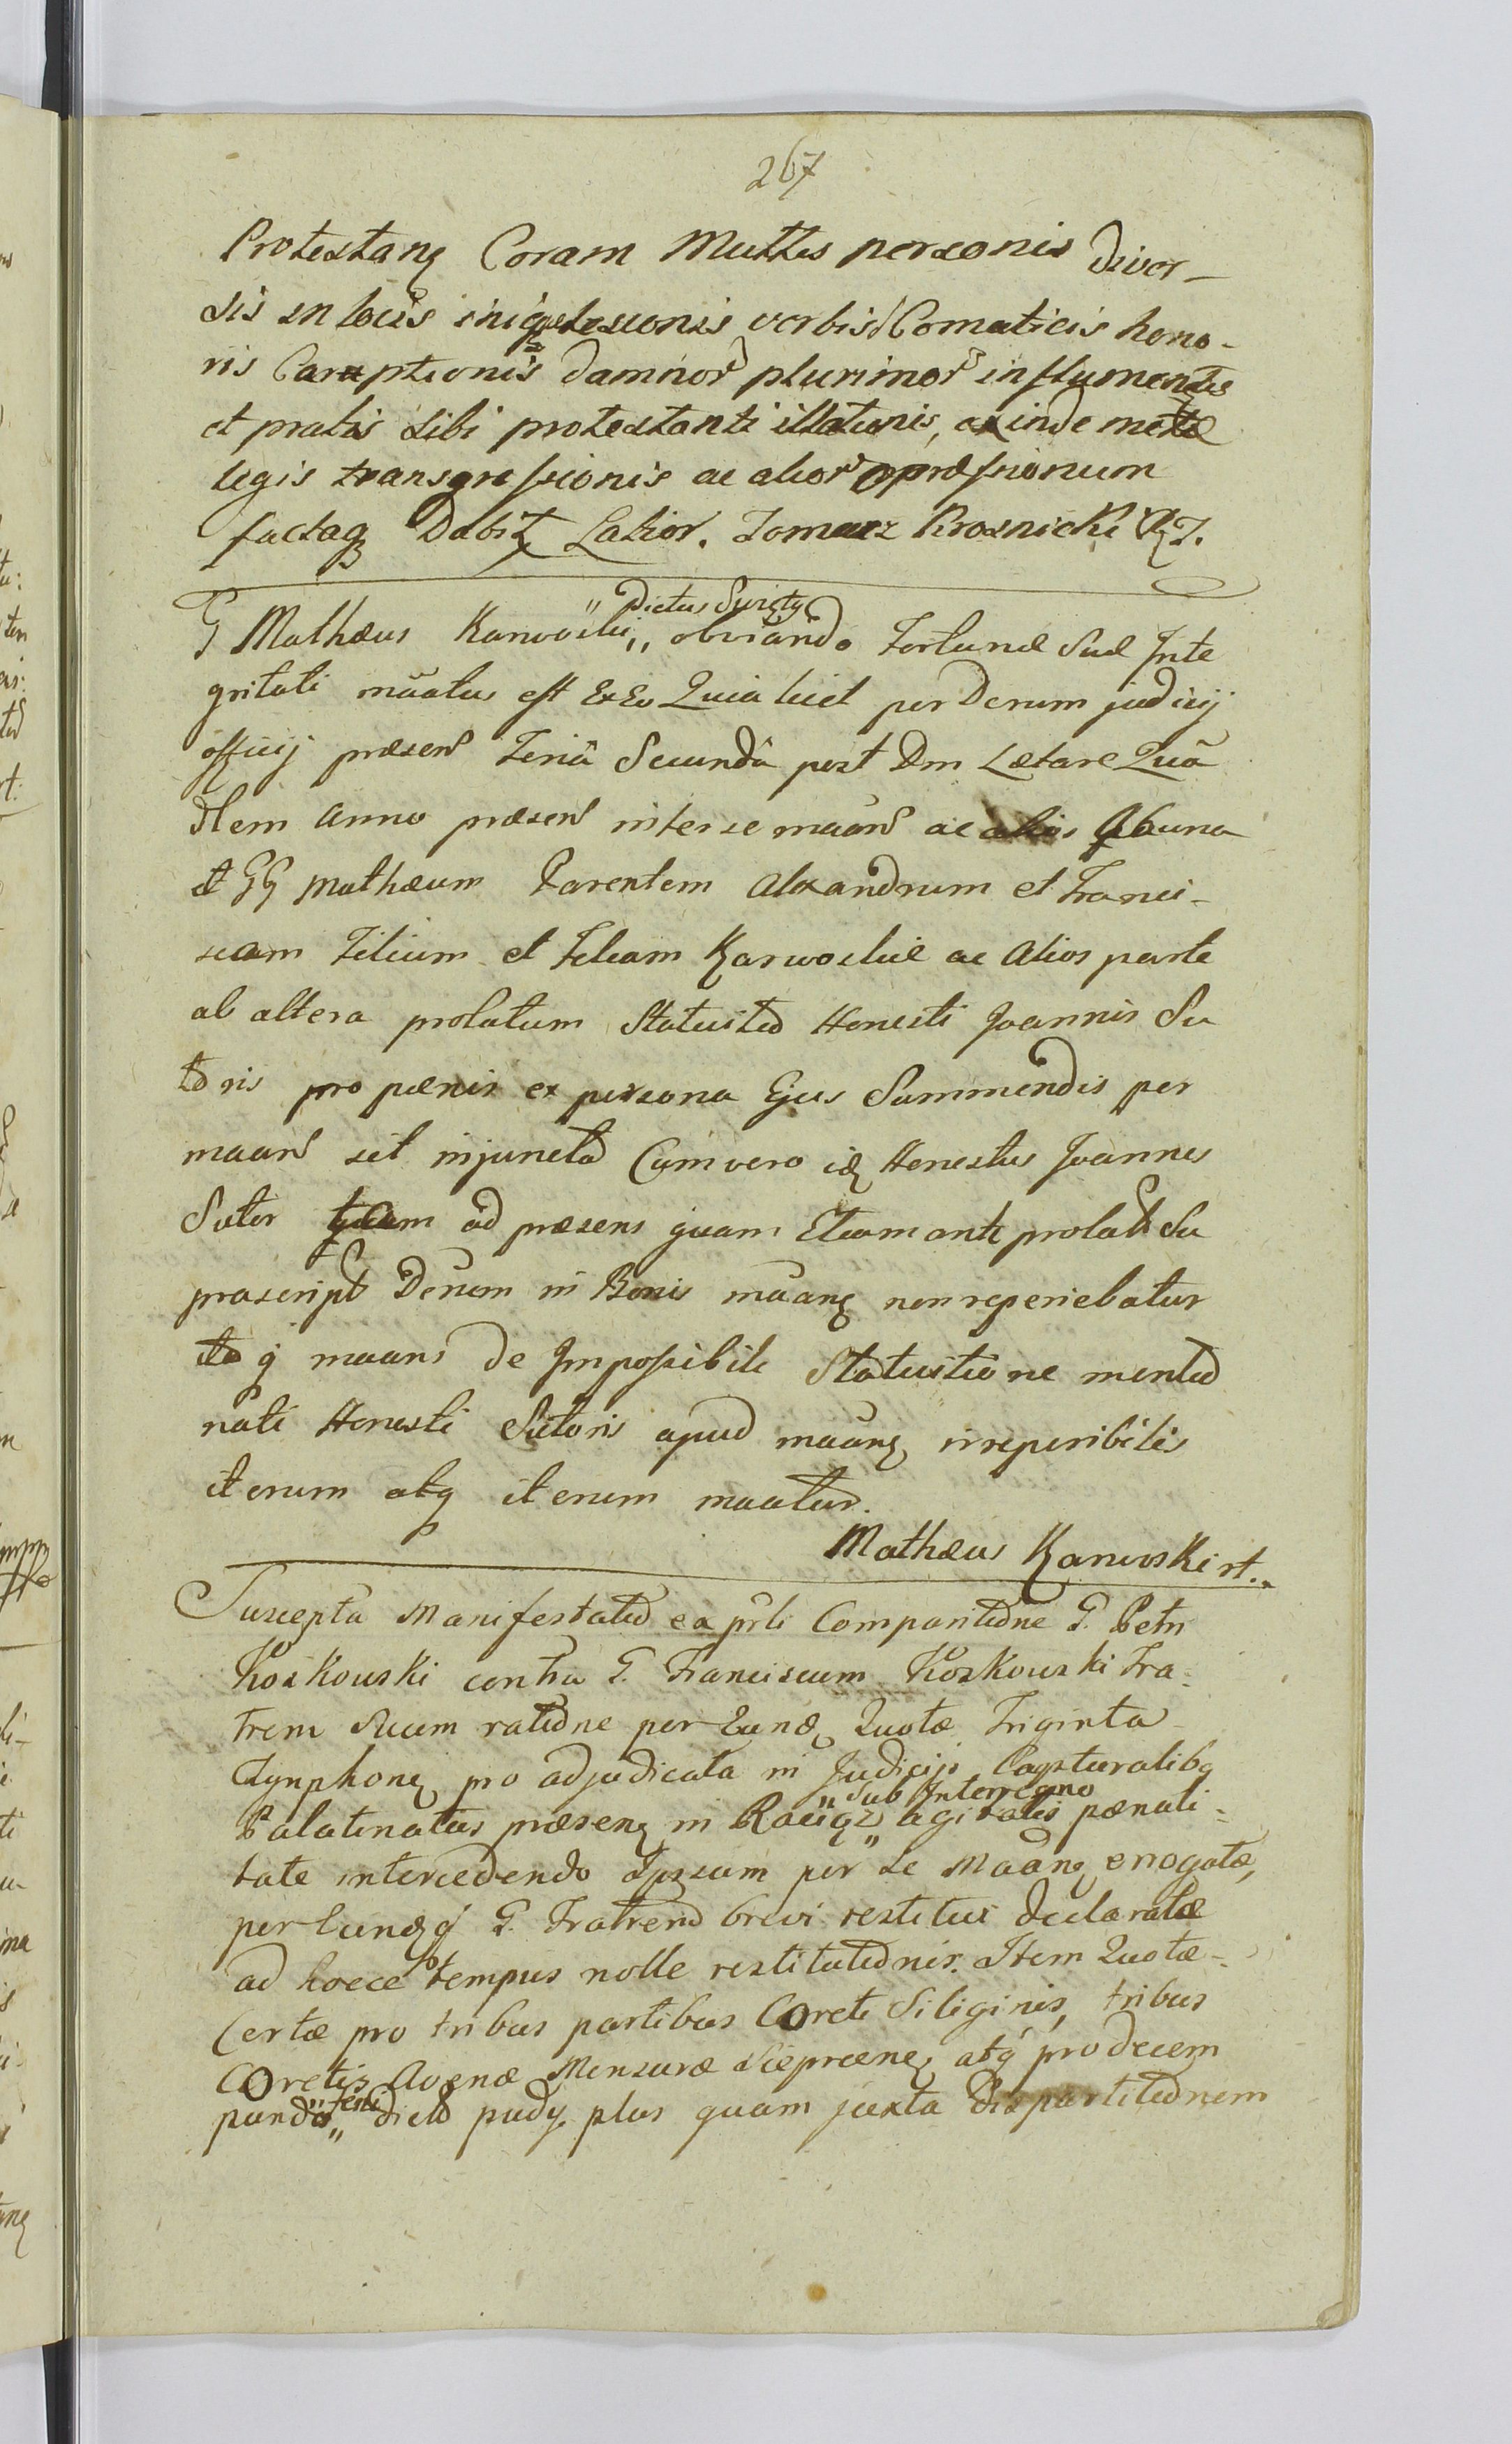 267
Protestanę Coram Multis personis diver-
sis in locis inique lesionis verbis Comaticis hono-
ris Caruptionis damnor plurimor influmentis
et pratis sibi protestanti illationis, ex inde
legis transgressionis ac alior oppræssionum
factaq Dabit Latior. Tomasz Krosnicki
G Mathæus Karwoski „dictus Swięty„ obviando Fortunæ suæ Inte
gritati mãatus est Ex Eo Quia licet per Dcrum judicij
officij præsens Feriâ Secundâ post Dm Lætare Quã
dlem anno præsens inter se maans ac alios ab una
et GG Mathæum Parentem Alexandrum et Franci-
scam Filium et Filiam Karwoskie ac Alios parte
ab altera prolatum Statuitio Honesti Joannis Su
toris pro pænis ex persona Ejus Summendis per
maans sit injuncta Cum vero idę Honestus Joannes
Sutor tam ad præsens quam Etiam ante prolat Su
prascript Denem in Bonis mãanę non reperiebatur
ito q maans de Impossibile Statuitione mentio
nati Honesti Sutoris apud maanę irreperibilis
iterum atq iterum maatur.
Mathæus Karwoski
Suscepta Manifestatio ex prli Comparitione G. Petri
Koskowski contra G. Franciscum Koskowski Fra-
trem Suum ratione per Eundę Quotæ Triginta
Tynphonę pro adjudicata in Judicijs Capturalibq
Palatinatus præsenę in Raciąż „Sub Interregno„ agitatis pænali-
tate intercedendo Ipsum per se Maanę errogatæ,
per Eundęq G. Fratrem brevi restitui declaratæ
ad hocce tempus nolle restitutionis. Item Quotæ
Certæ pro tribus partibus Coreti Siliginis, tribus
Coretis Avenæ Mensuræ Sieprcenę atq pro decem
pondo feni„ dicto pudy plus quam juxta Dispartitionem